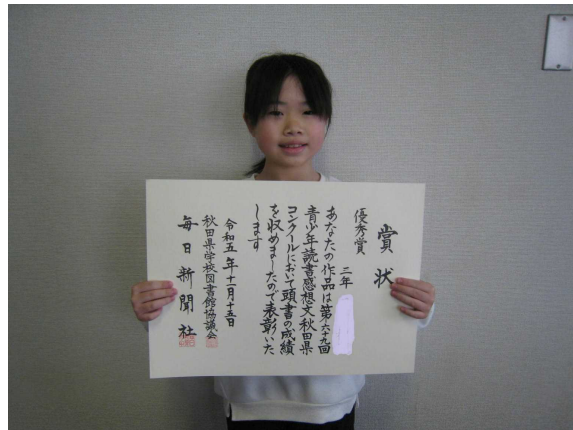 賞状
優秀賞
三年
あなたの作品は第六十九回
青少年読書感想文秋田県
コンクールにおいて頭書の成績
を収めましたので表彰いた
します
令和五年十一月十五日
秋田県学校図書館協議会
毎日新聞社